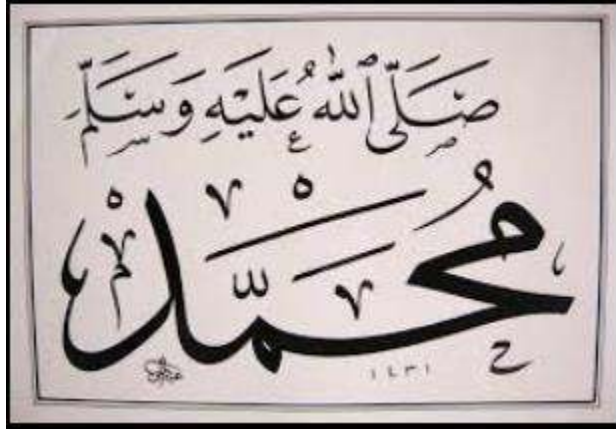 صَلَّى ٱللَّٰهُ عَلَيْهِ وَسَلَّمَ
مُحَمَّدْ
١٤٣١